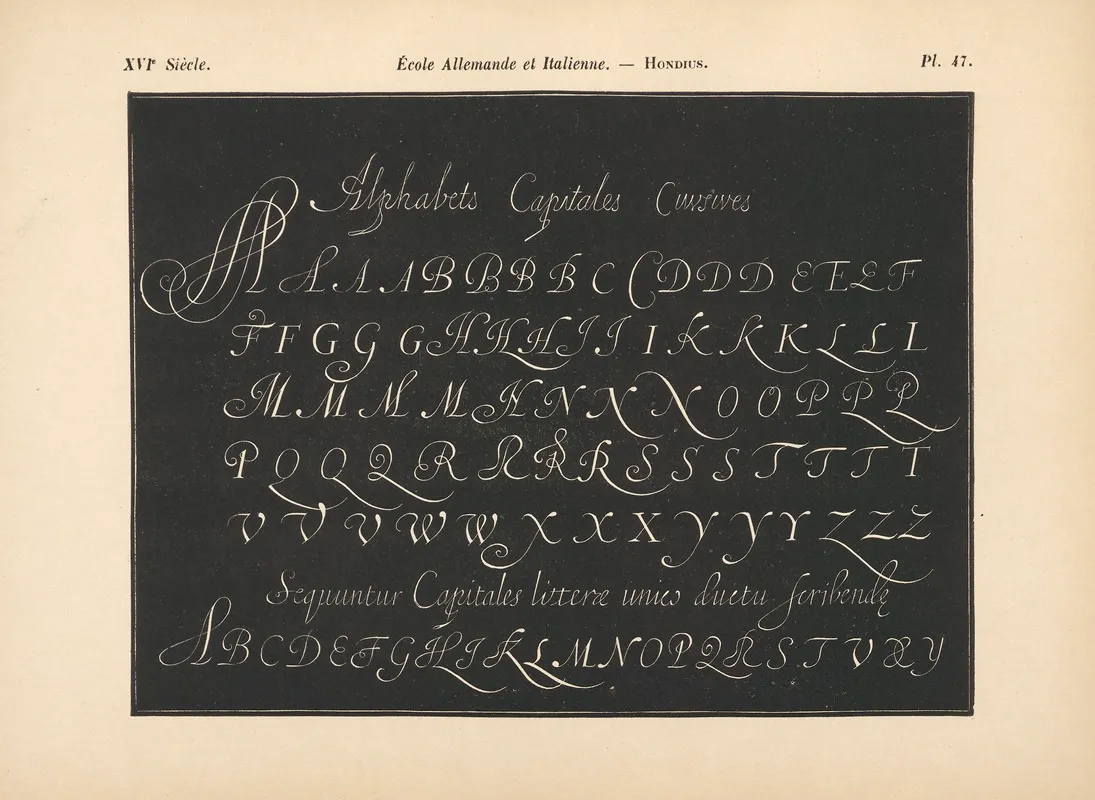 XVIe Siècle. École Allemande et Italienne. — Hondius. Pl. 47.
Alphabets Capitales Cursives
A A A A B B B B C C D D D E E E F
F F G G G H H H I I I K K K L L L
M M M M N N N N O O P P P
P Q Q Q R R R R S S S T T T T
V V V W W X X X Y Y Y Z Z Z
Sequuntur Capitales litteræ unico ductu scribendę
A B C D E F G H I K L M N O P Q R S T V X Y